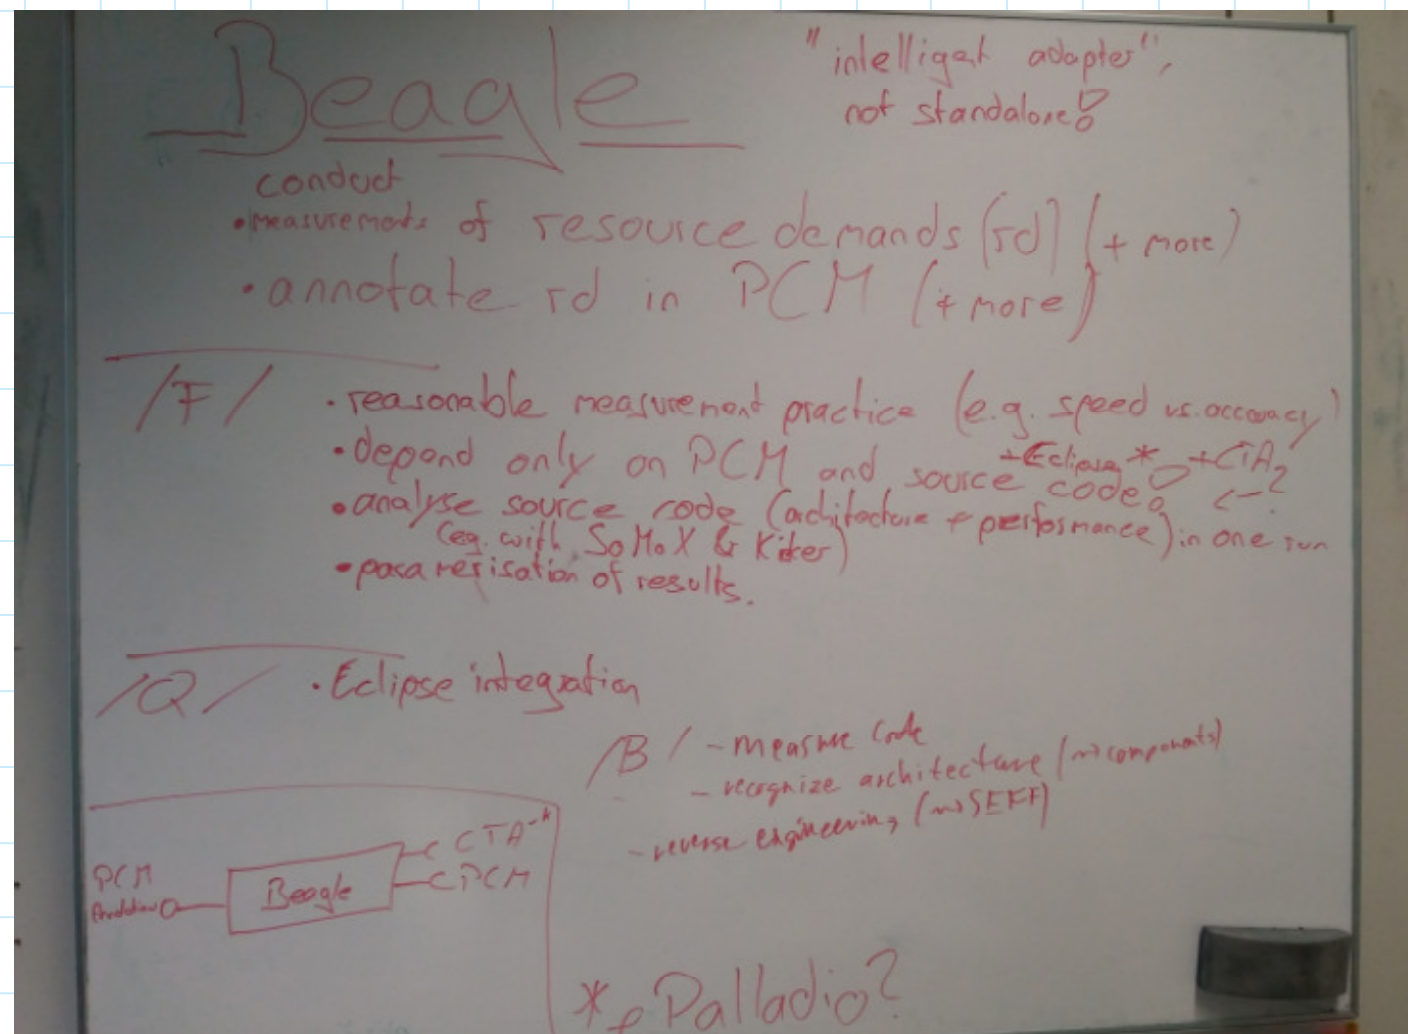 Beagle
"intelligent adapter",
not standalone!
conduct
• measurements of resource demands (rd) (+ more)
• annotate rd in PCM (+ more)
/F/
• reasonable measurement practice (e.g. speed vs. accuracy)
+Eclipse * +CTA?
• depend only on PCM and source code! <-?
• analyse source code (architecture + performance) in one run
(eg. with SoMoX & Kieker)
• parametrisation of results.
/Q/ • Eclipse integration
/B/ - measure code
- recognize architecture (⇝ components)
- reverse engineering (⇝ SEFF)
CTA-*
PCM
Beagle
PCM
* e Palladio?